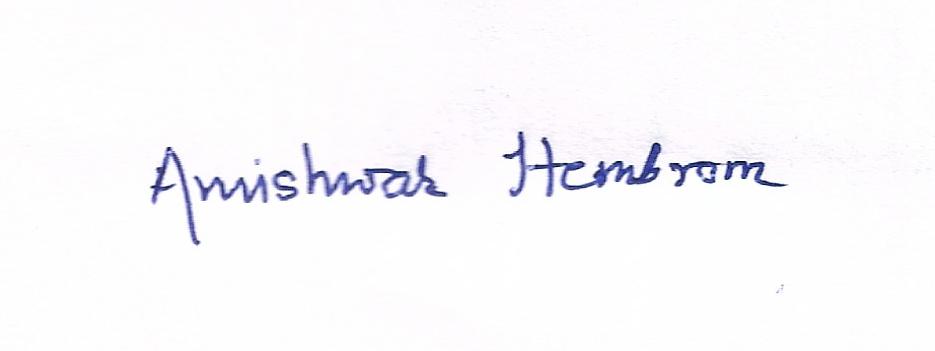 Amishwar Hembrom